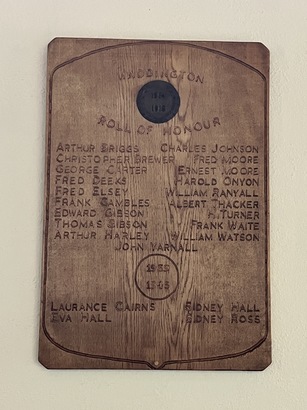 WADDINGTON
1914
1918
ROLL OF HONOUR
ARTHUR BRIGGS CHARLES JOHNSON
CHRISTOPHER BREWER FRED MOORE
GEORGE CARTER ERNEST MOORE
FRED DEEKS HAROLD ONYON
FRED ELSEY WILLIAM RANYALL
FRANK GAMBLES ALBERT THACKER
EDWARD GIBSON H. TURNER
THOMAS GIBSON FRANK WAITE
ARTHUR HARLEY WILLIAM WATSON
JOHN YARNALL
1939
LAURANCE CAIRNS SIDNEY HALL
EVA HALL SIDNEY ROSS